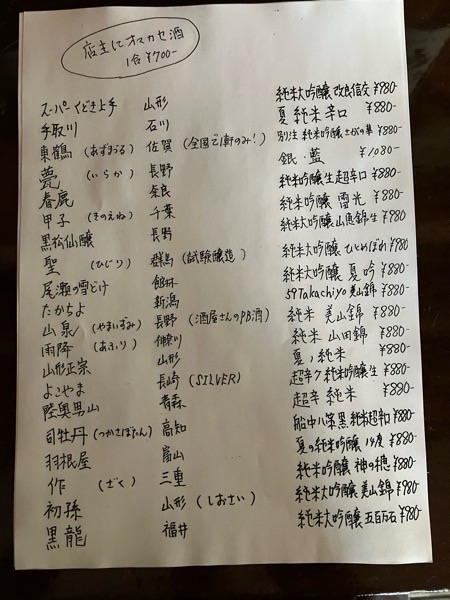 店主にオマカセ酒
1合 ¥700-
スーパーくどき上手 山形 純米大吟醸 改良信交 ¥980-
手取川 石川 夏 純米 辛口 ¥880-
東鶴 (あずまづる) 佐賀 (全国で1軒のみ!) 別注 純米吟醸 さがの華 ¥880-
甍 (いらか) 長野 銀・藍 ¥1080-
春鹿 奈良 純米吟醸生超辛口 ¥880-
甲子 (きのえね) 千葉 純米吟醸 雪光 ¥880-
黒松仙醸 長野 純米大吟醸 山恵錦生 ¥980-
聖 (ひじり) 群馬 (試験醸造) 純米大吟醸 ひとめぼれ ¥980-
尾瀬の雪どけ 館林 純米大吟醸 夏吟 ¥880-
たかちよ 新潟 59Takachiyo 美山錦 ¥880-
山泉 (やまいずみ) 長野 (酒屋さんのPB酒) 純米 美山錦 ¥880-
雨降 (あふり) 神奈川 純米 山田錦 ¥880-
山形正宗 山形 夏ノ純米 ¥880-
よこやま 長崎 (SILVER) 超辛7 純米吟醸生 ¥880-
陸奥男山 青森 超辛 純米 ¥880-
司牡丹 (つかさぼたん) 高知 船中八策黒 純米超辛口 ¥880-
羽根屋 富山 夏の純米吟醸 14度 ¥880-
作 (ざく) 三重 純米吟醸 神の穂 ¥880-
初孫 山形 (しおさい) 純米大吟醸 美山錦 ¥980-
黒龍 福井 純米大吟醸 五百万石 ¥980-